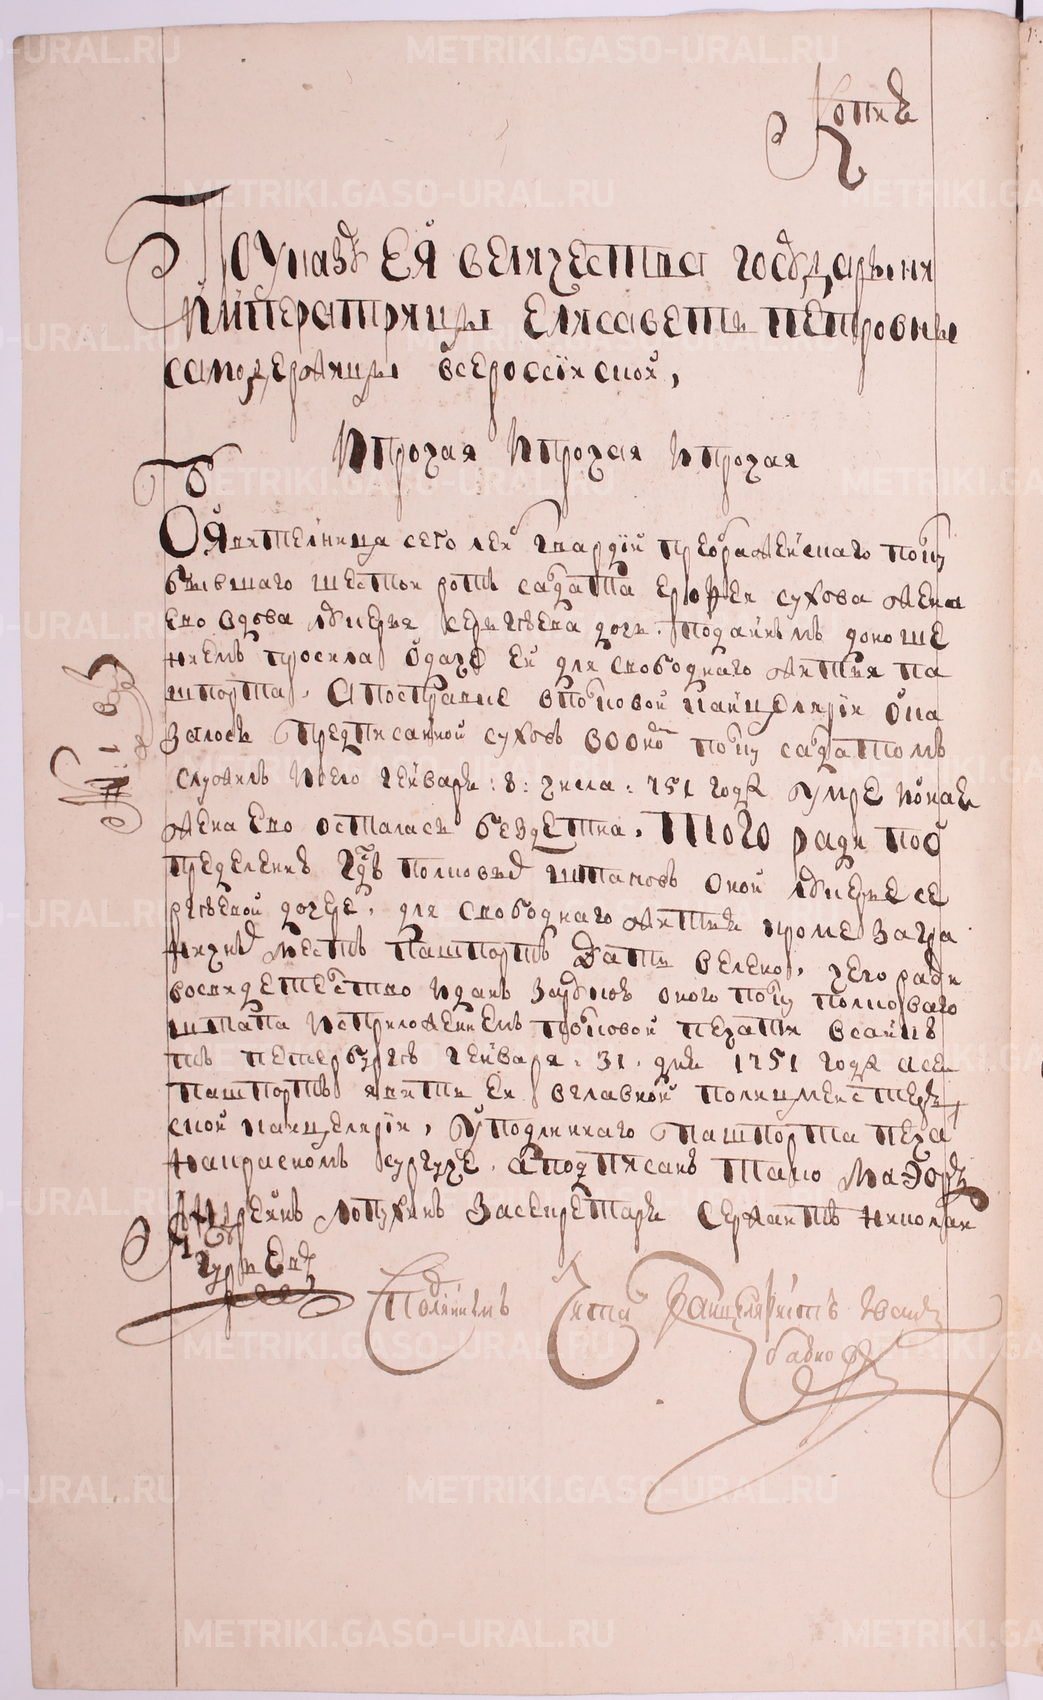 Копия
По указу ея величества государыни
императрицы елисаветы петровны
самодержицы всероссийской,
и прочая и прочая и прочая
Объявителница сего леиб гвардии преображенскаго полку
бывшаго шестои роты салдата сухова жена
ево вдова лукерья сергеева дочь. поданным доноше
нием просила о даче ей для свободнаго жития па
шпорта, а по справке в полковой канцелярии ока
залось предписанной сухов в оном полку салдатом
служил и сего генваря :8: числа : 751 году умре и оная
жена ево осталась бездетна, того ради по о
пределению полковых штапов оной лукерье се
ргеевой дочере, для свободнаго житья кроме загра
ничных мест пашпорт дать велено, чего ради
во свидетелство и дан за рукою оного полку полковаго
штапа и с приложением полковой печати в санкт
петербурге генваря .31. дня 1751 году а сей
пашпорт явить ей в главной полицмейстерь
ской канцелярии, у подлиннаго пашпорта печа
на красном сургуче, а подписан тако маэор
Андрей лопухин за секретаря сержант николай
С подлинным читал канцелярист Иван
№: 1.
METRIKI.GASO-URAL.RU